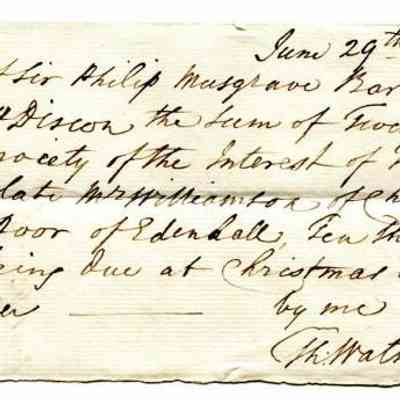 June 29th
Sir Philip Musgrave Bar
Discon the sum of Two
ociety of the Interest of
late Mr Williamson of Ch
Poor of Edenhall, Ten Th
being due at Christmas
by me
Th. Wats